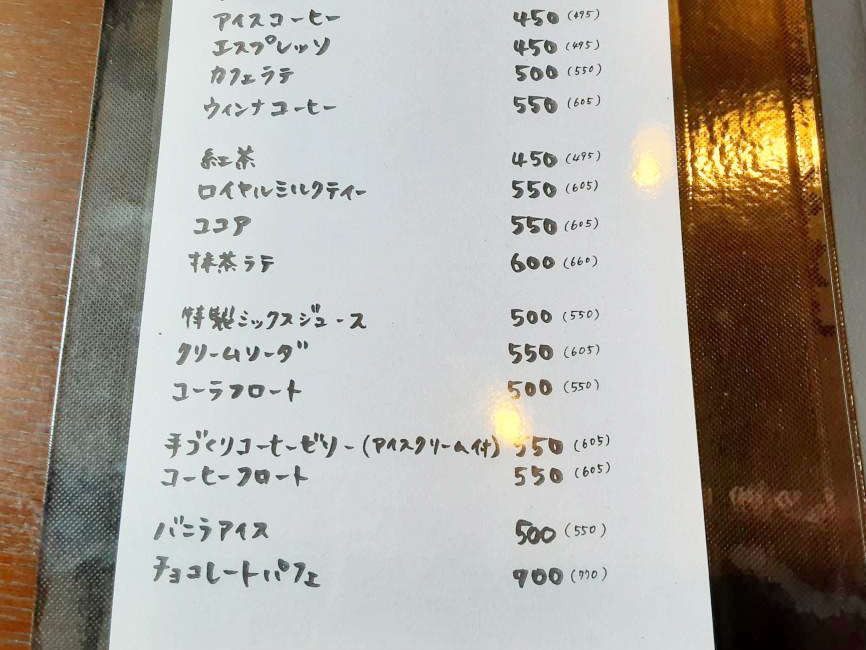 アイスコーヒー 450 (495)
エスプレッソ 450 (495)
カフェラテ 500 (550)
ウィンナコーヒー 550 (605)
紅茶 450 (495)
ロイヤルミルクティー 550 (605)
ココア 550 (605)
抹茶ラテ 600 (660)
特製ミックスジュース 500 (550)
クリームソーダ 550 (605)
コーラフロート 500 (550)
手づくりコーヒーゼリー(アイスクリーム付) 550 (605)
コーヒーフロート 550 (605)
バニラアイス 500 (550)
チョコレートパフェ 700 (770)